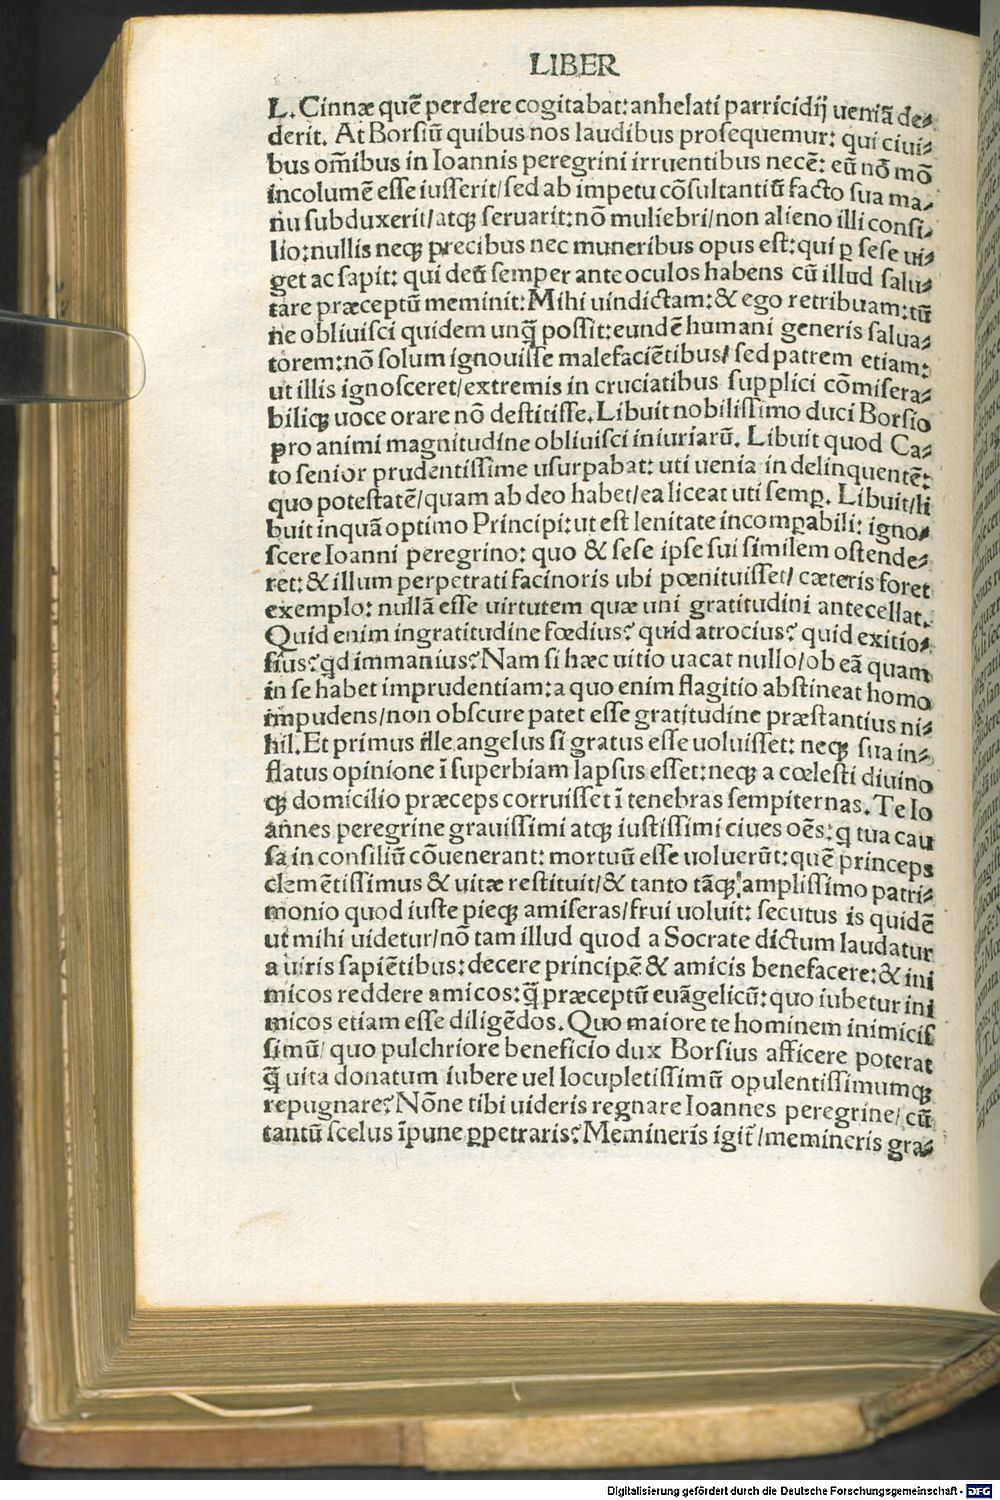 LIBER
L. Cinnæ quē perdere cogitabat: anhelati parricidij ueniā de⸗
derit. At Borsiū quibus nos laudibus prosequemur: qui ciui⸗
bus om̄ibus in Ioannis peregrini irruentibus necē: eū nō mō
incolumē esse iusserit/sed ab impetu cōsultantiū facto sua ma⸗
nu subduxerit/atqꝫ seruarit: nō muliebri/non alieno illi consi⸗
lio: nullis neqꝫ precibus nec muneribus opus est: qui ꝑ sese ui⸗
get ac sapit: qui deū semper ante oculos habens cū illud salu⸗
tare præceptū meminit: Mihi uindictam: & ego retribuam: tū
ne obliuisci quidem unq̄ possit: eundē humani generis salua⸗
torem: nō solum ignouisse malefaciētibus/ sed patrem etiam:
ut illis ignosceret/extremis in cruciatibus supplici cōmisera⸗
biliqꝫ uoce orare nō destitisse. Libuit nobilissimo duci Borsio
pro animi magnitudine obliuisci iniuriarū. Libuit quod Ca⸗
to senior prudentissime usurpabat: uti uenia in delinquentē:
quo potestatē/quam ab deo habet/ea liceat uti semꝑ. Libuit/li
buit inquā optimo Principi: ut est lenitate incomꝑabili: igno⸗
scere Ioanni peregrino: quo & sese ipse sui similem ostende⸗
ret: & illum perpetrati facinoris ubi pœnituisset/ cæteris foret
exemplo: nullā esse uirtutem quæ uni gratitudini antecellat.
Quid enim ingratitudine fœdius? quid atrocius? quid exitio⸗
sius? qd immanius? Nam si hæc uitio uacat nullo/ob eā quam
in se habet imprudentiam: a quo enim flagitio abstineat homo
impudens/non obscure patet esse gratitudine præstantius ni⸗
hil. Et primus ille angelus si gratus esse uoluisset: neqꝫ sua in⸗
flatus opinione ī superbiam lapsus esset: neqꝫ a cœlesti diuino
qꝫ domicilio præceps corruisset ī tenebras sempiternas. Te Io
annes peregrine grauissimi atqꝫ iustissimi ciues oēs: q tua cau
sa in consiliū cōuenerant: mortuū esse uoluerūt: quē princeps
clemētissimus & uitæ restituit/& tanto tāqꝫ amplissimo patri⸗
monio quod iuste pieqꝫ amiseras/frui uoluit: secutus is quidē
ut mihi uidetur/nō tam illud quod a Socrate dictum laudatur
a uiris sapiētibus: decere principē & amicis benefacere: & ini
micos reddere amicos: q̄ præceptū euāgelicū: quo iubetur ini
micos etiam esse diligēdos. Quo maiore te hominem inimicis
simū/ quo pulchriore beneficio dux Borsius afficere poterat
q̄ uita donatum iubere uel locupletissimū opulentissimumqꝫ
repugnare? Nōne tibi uideris regnare Ioannes peregrine/ cū
tantū scelus īpune ꝑpetraris? Memineris igit̄/memineris gra⸗
Digitalisierung gefördert durch die Deutsche Forschungsgemeinschaft - DFG